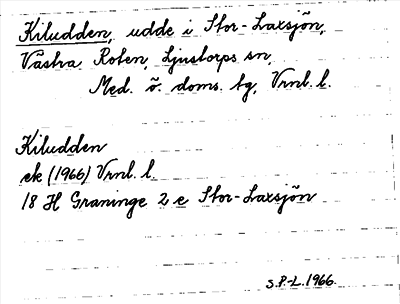 Kiludden, udde i Stor-Laxsjön,
Västra Roten, Ljustorps sn,
Med. ö. doms. tg, Vrnl. l.
Kiludden
ek (1966) Vrnl. l.
18 H Graninge 2 e Stor-Laxsjön
S.P-L. 1966.